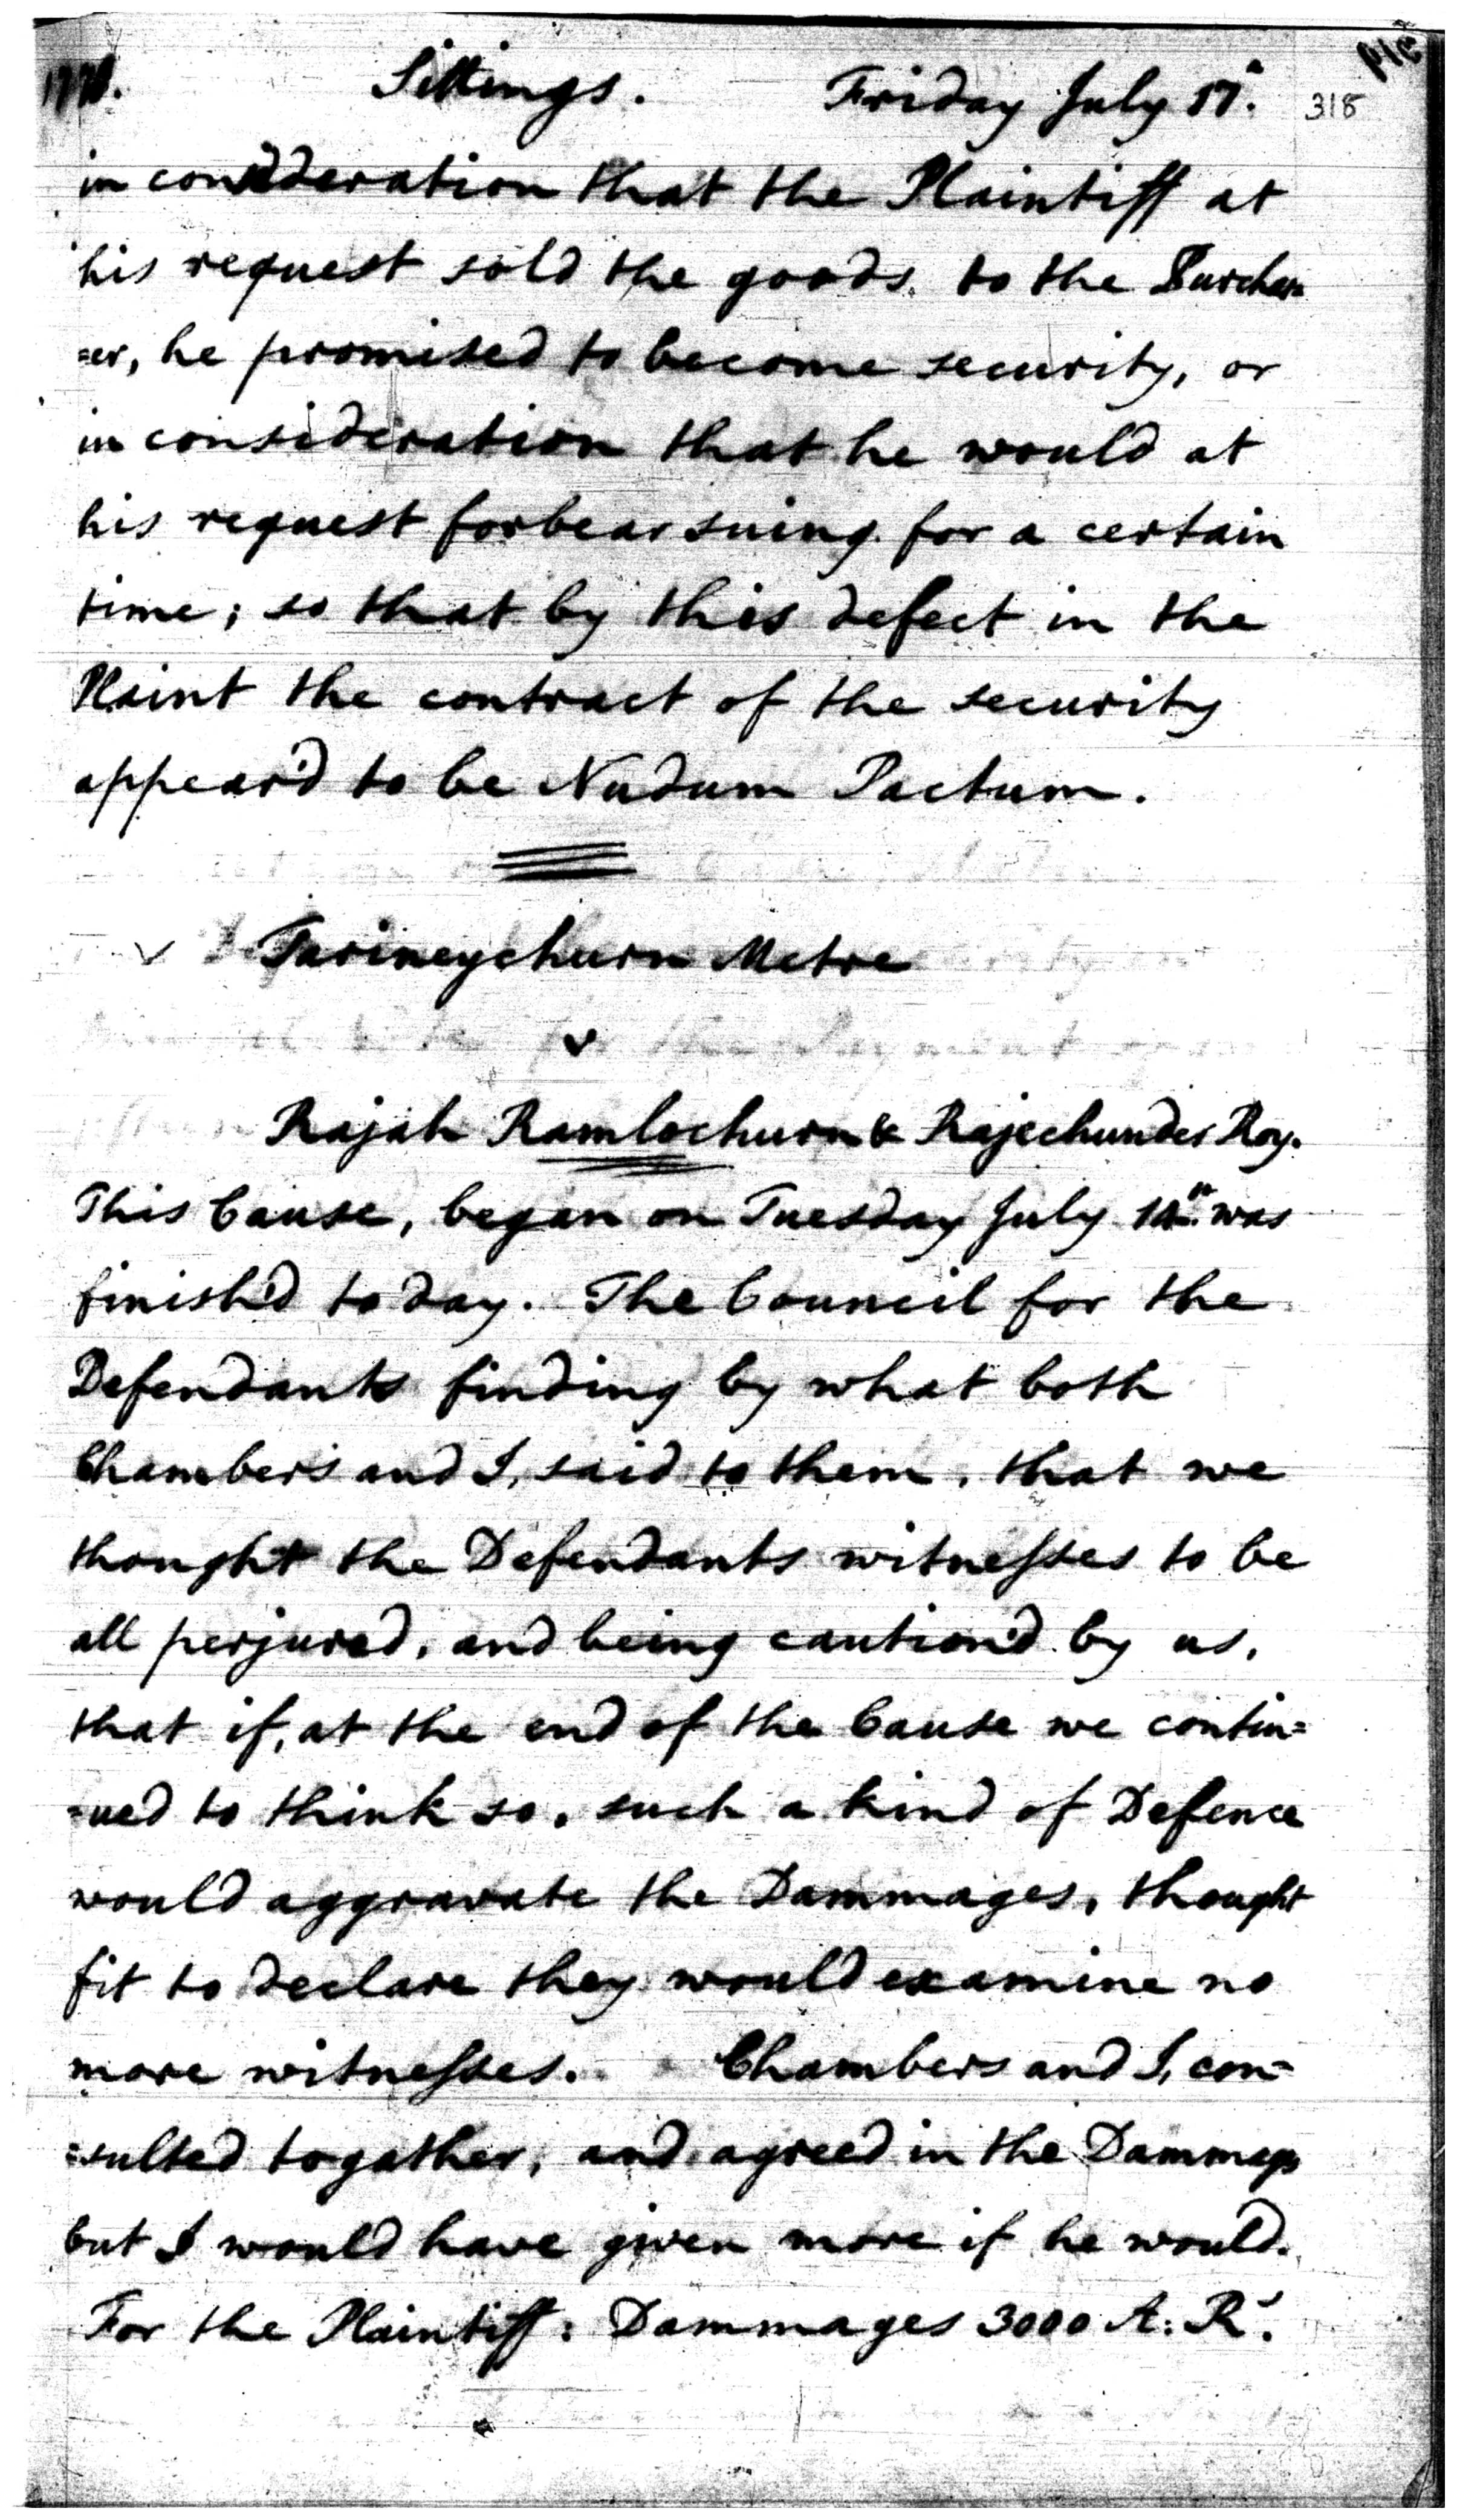 1778. Sittings. Friday July 17. 318
in consideration that the Plaintiff at
his request sold the goods to the Purchas
=er, he promised to become security, or
in consideration that he would at
his request forbear suing for a certain
time; so that by this defect in the
Plaint the contract of the security
appear'd to be Nudum Pactum.
Tarineychurn Metre
v
Rajah Ramlochurn & Rajechunder Roy.
This Cause, began on Tuesday July 14th. was
finish'd today. The Council for the
Defendants finding by what both
Chambers and I, said to them, that we
thought the Defendants witnesses to be
all perjured, and being caution'd by us,
that if, at the end of the Cause we contin=
=ued to think so, such a kind of Defence
would aggravate the Dammages, thought
fit to declare they would examine no
more witnesses. Chambers and I, con=
=sulted togather, and agreed in the Dammages
but I would have given more if he would.
For the Plaintiff: Dammages 3000 A: Rs.